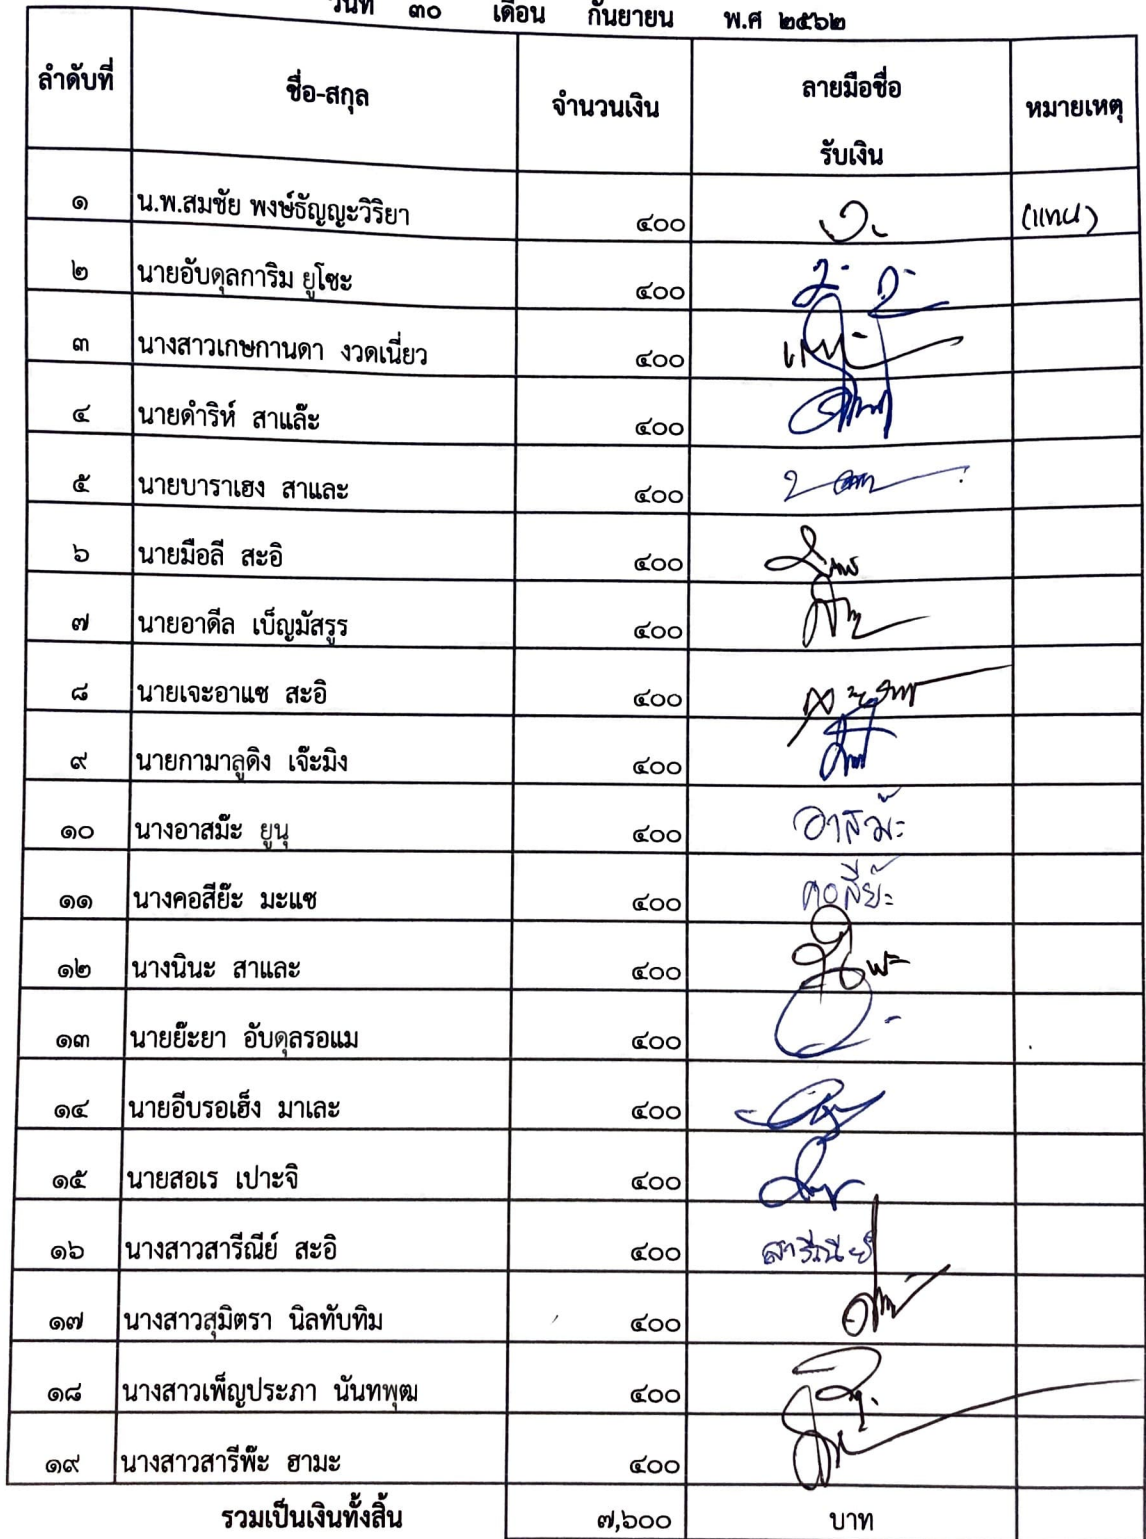 วันที่ ๓๐ เดือน กันยายน พ.ศ ๒๕๖๒
ลำดับที่ ชื่อ-สกุล จำนวนเงิน ลายมือชื่อ รับเงิน หมายเหตุ
๑ น.พ.สมชัย พงษ์ธัญญะวิริยา ๔๐๐ (แทน)
๒ นายอับดุลการิม ยูโซะ ๔๐๐
๓ นางสาวเกษกานดา งวดเนี่ยว ๔๐๐
๔ นายดำริห์ สาแล๊ะ ๔๐๐
๕ นายบาราเฮง สาและ ๔๐๐
๖ นายมือลี สะอิ ๔๐๐
๗ นายอาดีล เบ็ญมัสรูร ๔๐๐
๘ นายเจะอาแซ สะอิ ๔๐๐
๙ นายกามาลูดิง เจ๊ะมิง ๔๐๐
๑๐ นางอาสม๊ะ ยูนุ ๔๐๐ อาสม๊ะ
๑๑ นางคอสีย๊ะ มะแซ ๔๐๐ คอสีย๊ะ
๑๒ นางนินะ สาและ ๔๐๐
๑๓ นายย๊ะยา อับดุลรอแม ๔๐๐
๑๔ นายอีบรอเฮ็ง มาเละ ๔๐๐
๑๕ นายสอเร เปาะจิ ๔๐๐
๑๖ นางสาวสารีณีย์ สะอิ ๔๐๐ สารีณีย์
๑๗ นางสาวสุมิตรา นิลทับทิม ๔๐๐
๑๘ นางสาวเพ็ญประภา นันทพุฒ ๔๐๐
๑๙ นางสาวสารีพ๊ะ ฮามะ ๔๐๐
รวมเป็นเงินทั้งสิ้น ๗,๖๐๐ บาท